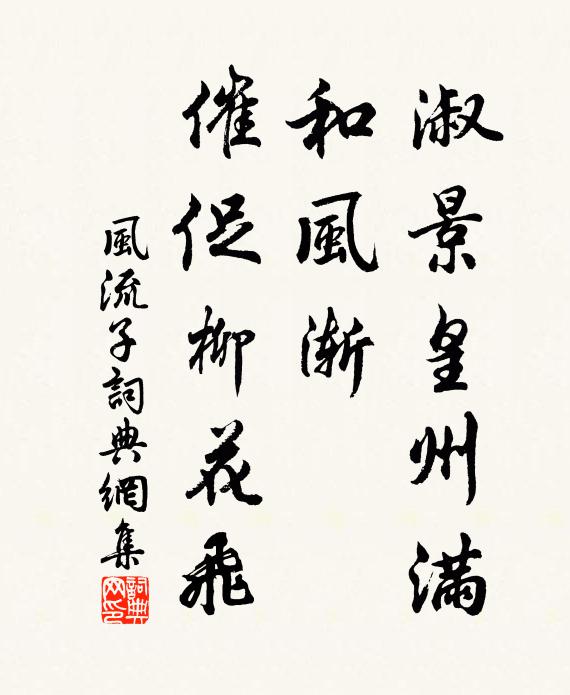 淑景皇州滿
和風漸
催促柳花飛
風流子詞典網集
詞典网印